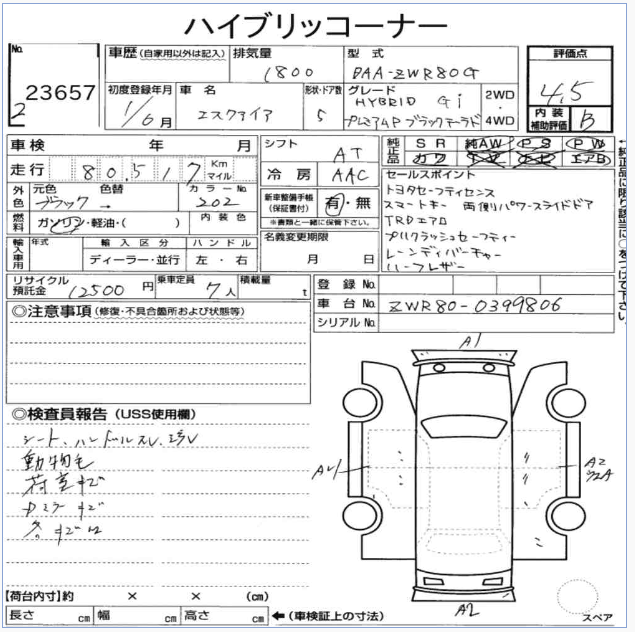 ハイブリッコーナー
No.
23657
2
車歴 (自家用以外は記入)
排気量
1800
型式
DAA-ZWR80G
評価点
4.5
初度登録年月
1/6月
車名
エスクァイア
形状・ドア数
5
グレード
HYBRID Gi
プレミアムP ブラックテーラド
2WD
・
4WD
内装
補助評価
B
車検 年 月
シフト
AT
純正品
SR 純AW PS PW
カワ ナビ TV エアB
走行 80,517 Km マイル
冷房
AAC
セールスポイント
トヨタセーフティセンス
スマートキー 両側パワースライドドア
TRDエアロ
プリクラッシュセーフティー
レーンディパーチャー
ハーフレザー
外色
元色 色替
ブラック →
カラーNo.
202
新車整備手帳
(保証書付)
有・無
※書類と一緒に保管下さい。
燃料
ガソリン・軽油・( )
内装色
名義変更期限
月 日
輸入車用
年式
輸入区分
ハンドル
ディーラー・並行
左・右
リサイクル
預託金
12500 円
乗車定員
7人
積載量
t
登録No.
車台No.
ZWR80-0399806
シリアルNo.
◎注意事項 (修復・不具合箇所および状態等)
◎検査員報告 (USS使用欄)
シート、ハンドルスレ
動物毛
荷室キズ
内キズ
A1
A2
A2
【荷台内寸】約 × × (cm)
長さ cm 幅 cm 高さ cm
←(車検証上の寸法)
スペア